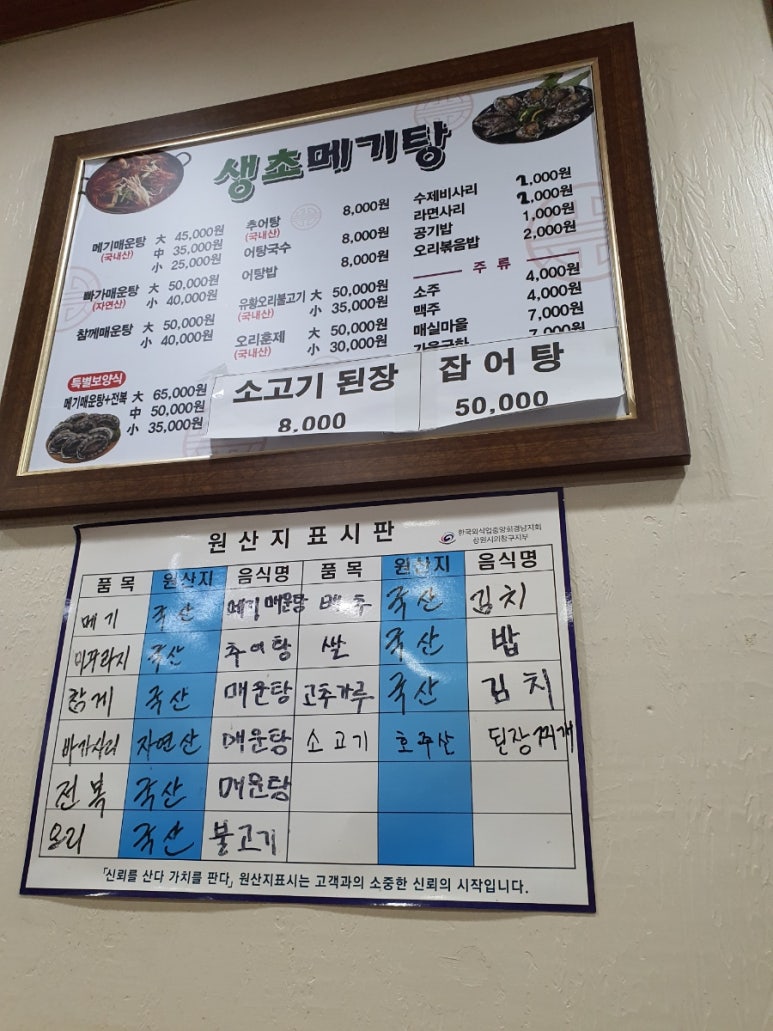 생초메기탕
메기매운탕 大 45,000원
(국내산) 中 35,000원
小 25,000원
빠가매운탕 大 50,000원
(자연산) 小 40,000원
참께매운탕 大 50,000원
小 40,000원
특별보양식
메기매운탕+전복 大 65,000원
中 50,000원
小 35,000원
추어탕 8,000원
(국내산)
어탕국수 8,000원
어탕밥 8,000원
유황오리불고기 大 50,000원
(국내산) 小 35,000원
오리훈제 大 50,000원
(국내산) 小 30,000원
수제비사리 2,000원
라면사리 2,000원
공기밥 1,000원
오리볶음밥 2,000원
주 류
소주 4,000원
맥주 4,000원
매실마을 7,000원
7,000원
소고기 된장
8,000
잡어탕
50,000
원산지표시판
한국외식업중앙회경남지회
창원시의창구지부
품목 원산지 음식명 품목 원산지 음식명
메기 국산 메기매운탕 배추 국산 김치
미꾸라지 국산 추어탕 쌀 국산 밥
참게 국산 매운탕 고추가루 국산 김치
빠가사리 자연산 매운탕 소고기 호주산 된장찌개
전복 국산 매운탕
오리 국산 불고기
「신뢰를 산다 가치를 판다」 원산지표시는 고객과의 소중한 신뢰의 시작입니다.